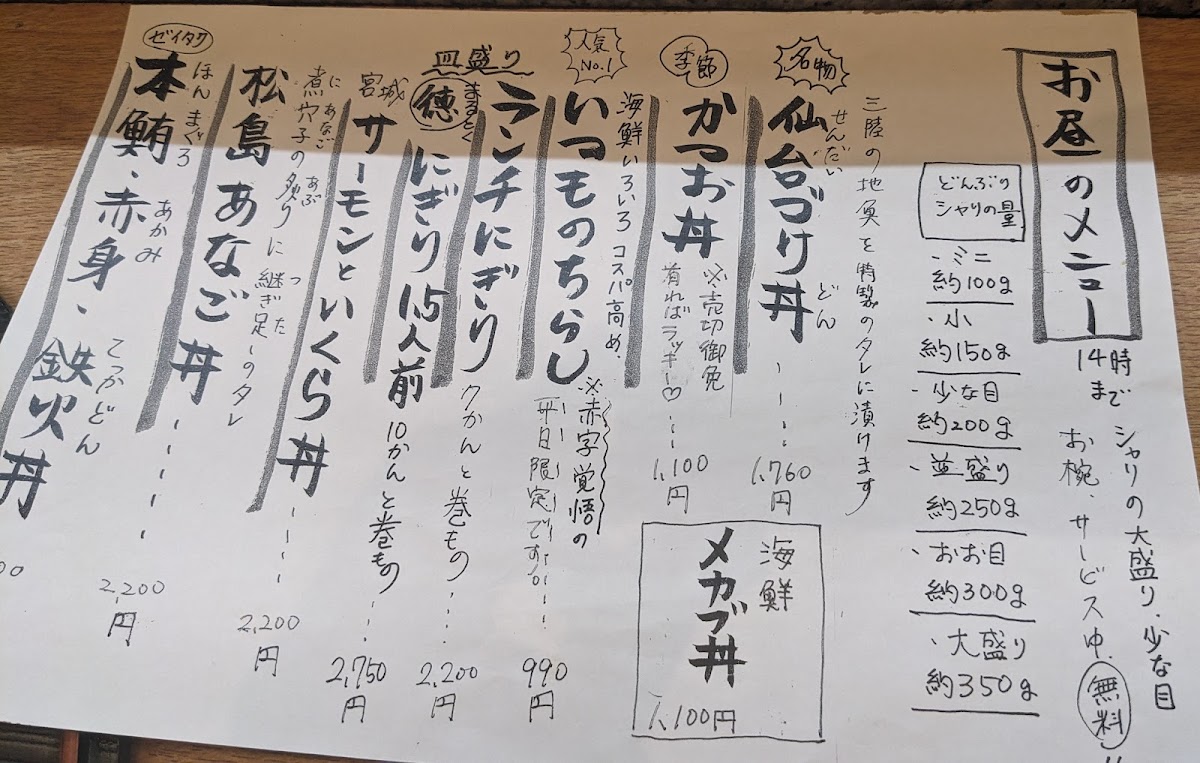 お昼のメニュー
14時まで
シャリの大盛り、少な目
お椀、サービス中、無料
どんぶりシャリの量
・ミニ
約100g
・小
約150g
・少な目
約200g
・並盛り
約250g
・おお目
約300g
・大盛り
約350g
三陸の地魚を特製のタレに漬けます
名物
仙台づけ丼
せんだい どん
1,760円
季節
かつお丼
※売切御免
有ればラッキー♡
1,100円
海鮮
メカブ丼
1,100円
海鮮いろいろ コスパ高め、
人気No.1
いつものちらし
※赤字覚悟の
平日限定ですが
990円
皿盛り
ランチにぎり
7かんと巻もの
2,200円
まるとく
徳 にぎり1.5人前
10かんと巻もの
2,750円
宮城
サーモンといくら丼
2,200円
煮穴子の炙りに継ぎ足しのタレ
に あなご あぶ つ た
松島あなご丼
2,200円
ゼイタク
本鮪・赤身・鉄火丼
ほんまぐろ あかみ てっかどん
00